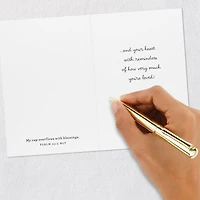 ...and your heart
with reminders
of how very much
you're loved!
My cup overflows with blessings.
PSALM 23:5 NLT